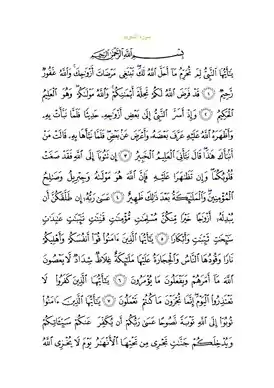 سورة التحريم
بِسْمِ اللَّهِ الرَّحْمَٰنِ الرَّحِيمِ
يَا أَيُّهَا النَّبِيُّ لِمَ تُحَرِّمُ مَا أَحَلَّ اللَّهُ لَكَ تَبْتَغِي مَرْضَاتَ أَزْوَاجِكَ وَاللَّهُ غَفُورٌ
رَّحِيمٌ ١ قَدْ فَرَضَ اللَّهُ لَكُمْ تَحِلَّةَ أَيْمَانِكُمْ وَاللَّهُ مَوْلَاكُمْ وَهُوَ الْعَلِيمُ
الْحَكِيمُ ٢ وَإِذْ أَسَرَّ النَّبِيُّ إِلَىٰ بَعْضِ أَزْوَاجِهِ حَدِيثًا فَلَمَّا نَبَّأَتْ بِهِ
وَأَظْهَرَهُ اللَّهُ عَلَيْهِ عَرَّفَ بَعْضَهُ وَأَعْرَضَ عَن بَعْضٍ فَلَمَّا نَبَّأَهَا بِهِ قَالَتْ مَنْ
أَنبَأَكَ هَٰذَا قَالَ نَبَّأَنِيَ الْعَلِيمُ الْخَبِيرُ ٣ إِن تَتُوبَا إِلَى اللَّهِ فَقَدْ صَغَتْ
قُلُوبُكُمَا وَإِن تَظَاهَرَا عَلَيْهِ فَإِنَّ اللَّهَ هُوَ مَوْلَاهُ وَجِبْرِيلُ وَصَالِحُ
الْمُؤْمِنِينَ وَالْمَلَائِكَةُ بَعْدَ ذَٰلِكَ ظَهِيرٌ ٤ عَسَىٰ رَبُّهُ إِن طَلَّقَكُنَّ أَن
يُبْدِلَهُ أَزْوَاجًا خَيْرًا مِّنكُنَّ مُسْلِمَاتٍ مُّؤْمِنَاتٍ قَانِتَاتٍ تَائِبَاتٍ عَابِدَاتٍ
سَائِحَاتٍ ثَيِّبَاتٍ وَأَبْكَارًا ٥ يَا أَيُّهَا الَّذِينَ آمَنُوا قُوا أَنفُسَكُمْ وَأَهْلِيكُمْ
نَارًا وَقُودُهَا النَّاسُ وَالْحِجَارَةُ عَلَيْهَا مَلَائِكَةٌ غِلَاظٌ شِدَادٌ لَّا يَعْصُونَ
اللَّهَ مَا أَمَرَهُمْ وَيَفْعَلُونَ مَا يُؤْمَرُونَ ٦ يَا أَيُّهَا الَّذِينَ كَفَرُوا لَا
تَعْتَذِرُوا الْيَوْمَ إِنَّمَا تُجْزَوْنَ مَا كُنتُمْ تَعْمَلُونَ ٧ يَا أَيُّهَا الَّذِينَ آمَنُوا
تُوبُوا إِلَى اللَّهِ تَوْبَةً نَّصُوحًا عَسَىٰ رَبُّكُمْ أَن يُكَفِّرَ عَنكُمْ سَيِّئَاتِكُمْ
وَيُدْخِلَكُمْ جَنَّاتٍ تَجْرِي مِن تَحْتِهَا الْأَنْهَارُ يَوْمَ لَا يُخْزِي اللَّهُ